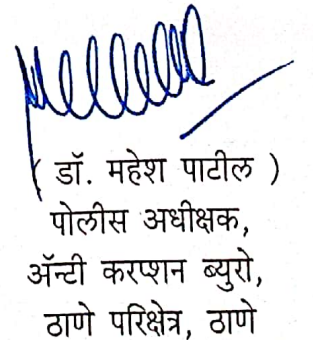 ( डॉ. महेश पाटील )
पोलीस अधीक्षक,
ॲन्टी करप्शन ब्युरो,
ठाणे परिक्षेत्र, ठाणे